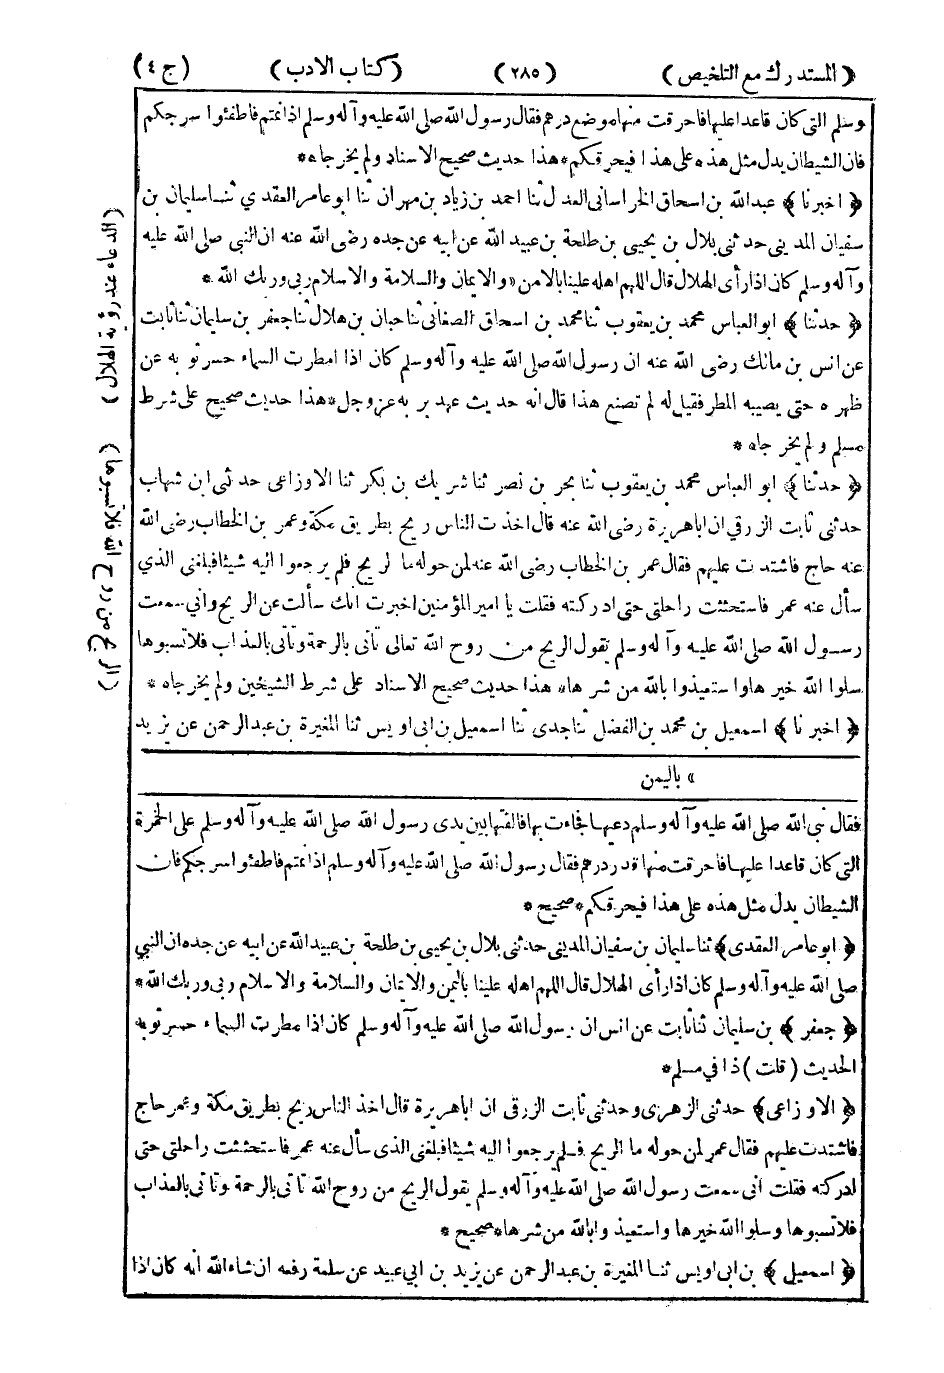 ( المستدرك مع التلخيص ) ( ٢٨٥ ) ( كتاب الادب ) ( ج ٤ )
وسلم التى كان قاعدا عليها فاحرقت منها موضع درهم فقال رسول الله صلى الله عليه وآله وسلم اذا نمتم فاطفئوا سرجكم
فان الشيطان يدل مثل هذه على هذا فيحرقكم * هذا حديث صحيح الاسناد ولم يخرجاه *
﴿ اخبرنا ﴾ عبدالله بن اسحاق الخراسانى العدل ثنا احمد بن زياد بن مهران ثنا ابوعامر العقدي ثنا سليمان بن
سفيان المدينى حدثنى بلال بن يحيى بن طلحة بن عبيد الله عن ابيه عن جده رضى الله عنه ان النبى صلى الله عليه
وآله وسلم كان اذا رأى الهلال قال اللهم اهله علينا بالامن « والايمان والسلامة والاسلام ربى وربك الله *
﴿ حدثنا ﴾ ابوالعباس محمد بن يعقوب ثنا محمد بن اسحاق الصغانى ثنا حبان بن هلال ثنا جعفر بن سليمان ثنا ثابت
عن انس بن مالك رضى الله عنه ان رسول الله صلى الله عليه وآله وسلم كان اذا امطرت السماء حسر ثوبه عن
ظهره حتى يصيبه المطر فقيل له لم تصنع هذا قال انه حديث عهد بربه عز وجل * هذا حديث صحيح على شرط
مسلم ولم يخرجاه *
﴿ حدثنا ﴾ ابو العباس محمد بن يعقوب ثنا بحر بن نصر ثنا شريك بن بكر ثنا الاوزاعى حدثنى ابن شهاب
حدثنى ثابت الزرقى ان اباهريرة رضى الله عنه قال اخذت الناس ريح بطريق مكة وعمر بن الخطاب رضى الله
عنه حاج فاشتدت عليهم فقال عمر بن الخطاب رضى الله عنه لمن حوله ما الريح فلم يرجعوا اليه شيئا فبلغنى الذي
سأل عنه عمر فاستحثثت راحلتى حتى ادركته فقلت يا امير المؤمنين اخبرت انك سألت عن الريح وانى سمعت
رسول الله صلى الله عليه وآله وسلم يقول الريح من روح الله تعالى تأتى بالرحمة وتأتى بالعذاب فلا تسبوها
سلوا الله خيرها واستعيذوا بالله من شرها * هذا حديث صحيح الاسناد على شرط الشيخين ولم يخرجاه *
﴿ اخبرنا ﴾ اسمعيل بن محمد بن الفضل ثنا جدى ثنا اسمعيل بن ابى اويس ثنا المغيرة بن عبدالرحمن عن يزيد
( الدعاء عند رؤية الهلال )
( الريح من روح الله فلا تسبوها )
« باليمن
فقال نبى الله صلى الله عليه وآله وسلم دعيها فجاءت بها فالقتها بين يدى رسول الله صلى الله عليه وآله وسلم على الخمرة
التى كان قاعدا عليها فاحرقت منها قدر درهم فقال رسول الله صلى الله عليه وآله وسلم اذا نمتم فاطفئوا سرجكم فان
الشيطان يدل مثل هذه على هذا فيحرقكم * صحيح *
﴿ ابوعامر العقدى ﴾ ثنا سليمان بن سفيان المدينى حدثنى بلال بن يحيى بن طلحة بن عبيد الله عن ابيه عن جده ان النبي
صلى الله عليه وآله وسلم كان اذا رأى الهلال قال اللهم اهله علينا باليمن والايمان والسلامة والاسلام ربى وربك الله *
﴿ جعفر ﴾ بن سليمان ثنا ثابت عن انس ان رسول الله صلى الله عليه وآله وسلم كان اذا مطرت السماء حسر ثوبه
الحديث ( قلت ) ذا في مسلم *
﴿ الاوزاعى ﴾ حدثنى الزهرى وحدثنى ثابت الزرقى ان اباهريرة قال اخذ الناس ريح بطريق مكة وعمر حاج
فاشتدت عليهم فقال عمر لمن حوله ما الريح فلم يرجعوا اليه شيئا فبلغنى الذى سأل عنه عمر فاستحثثت راحلتى حتى
ادركته فقلت انى سمعت رسول الله صلى الله عليه وآله وسلم يقول الريح من روح الله تأتى بالرحمة وتأتى بالعذاب
فلا تسبوها وسلوا الله خيرها واستعيذوا بالله من شرها * صحيح *
﴿ اسمعيل ﴾ بن ابى اويس ثنا المغيرة بن عبدالرحمن عن يزيد بن ابي عبيد عن سلمة رفعه ان شاء الله انه كان اذا